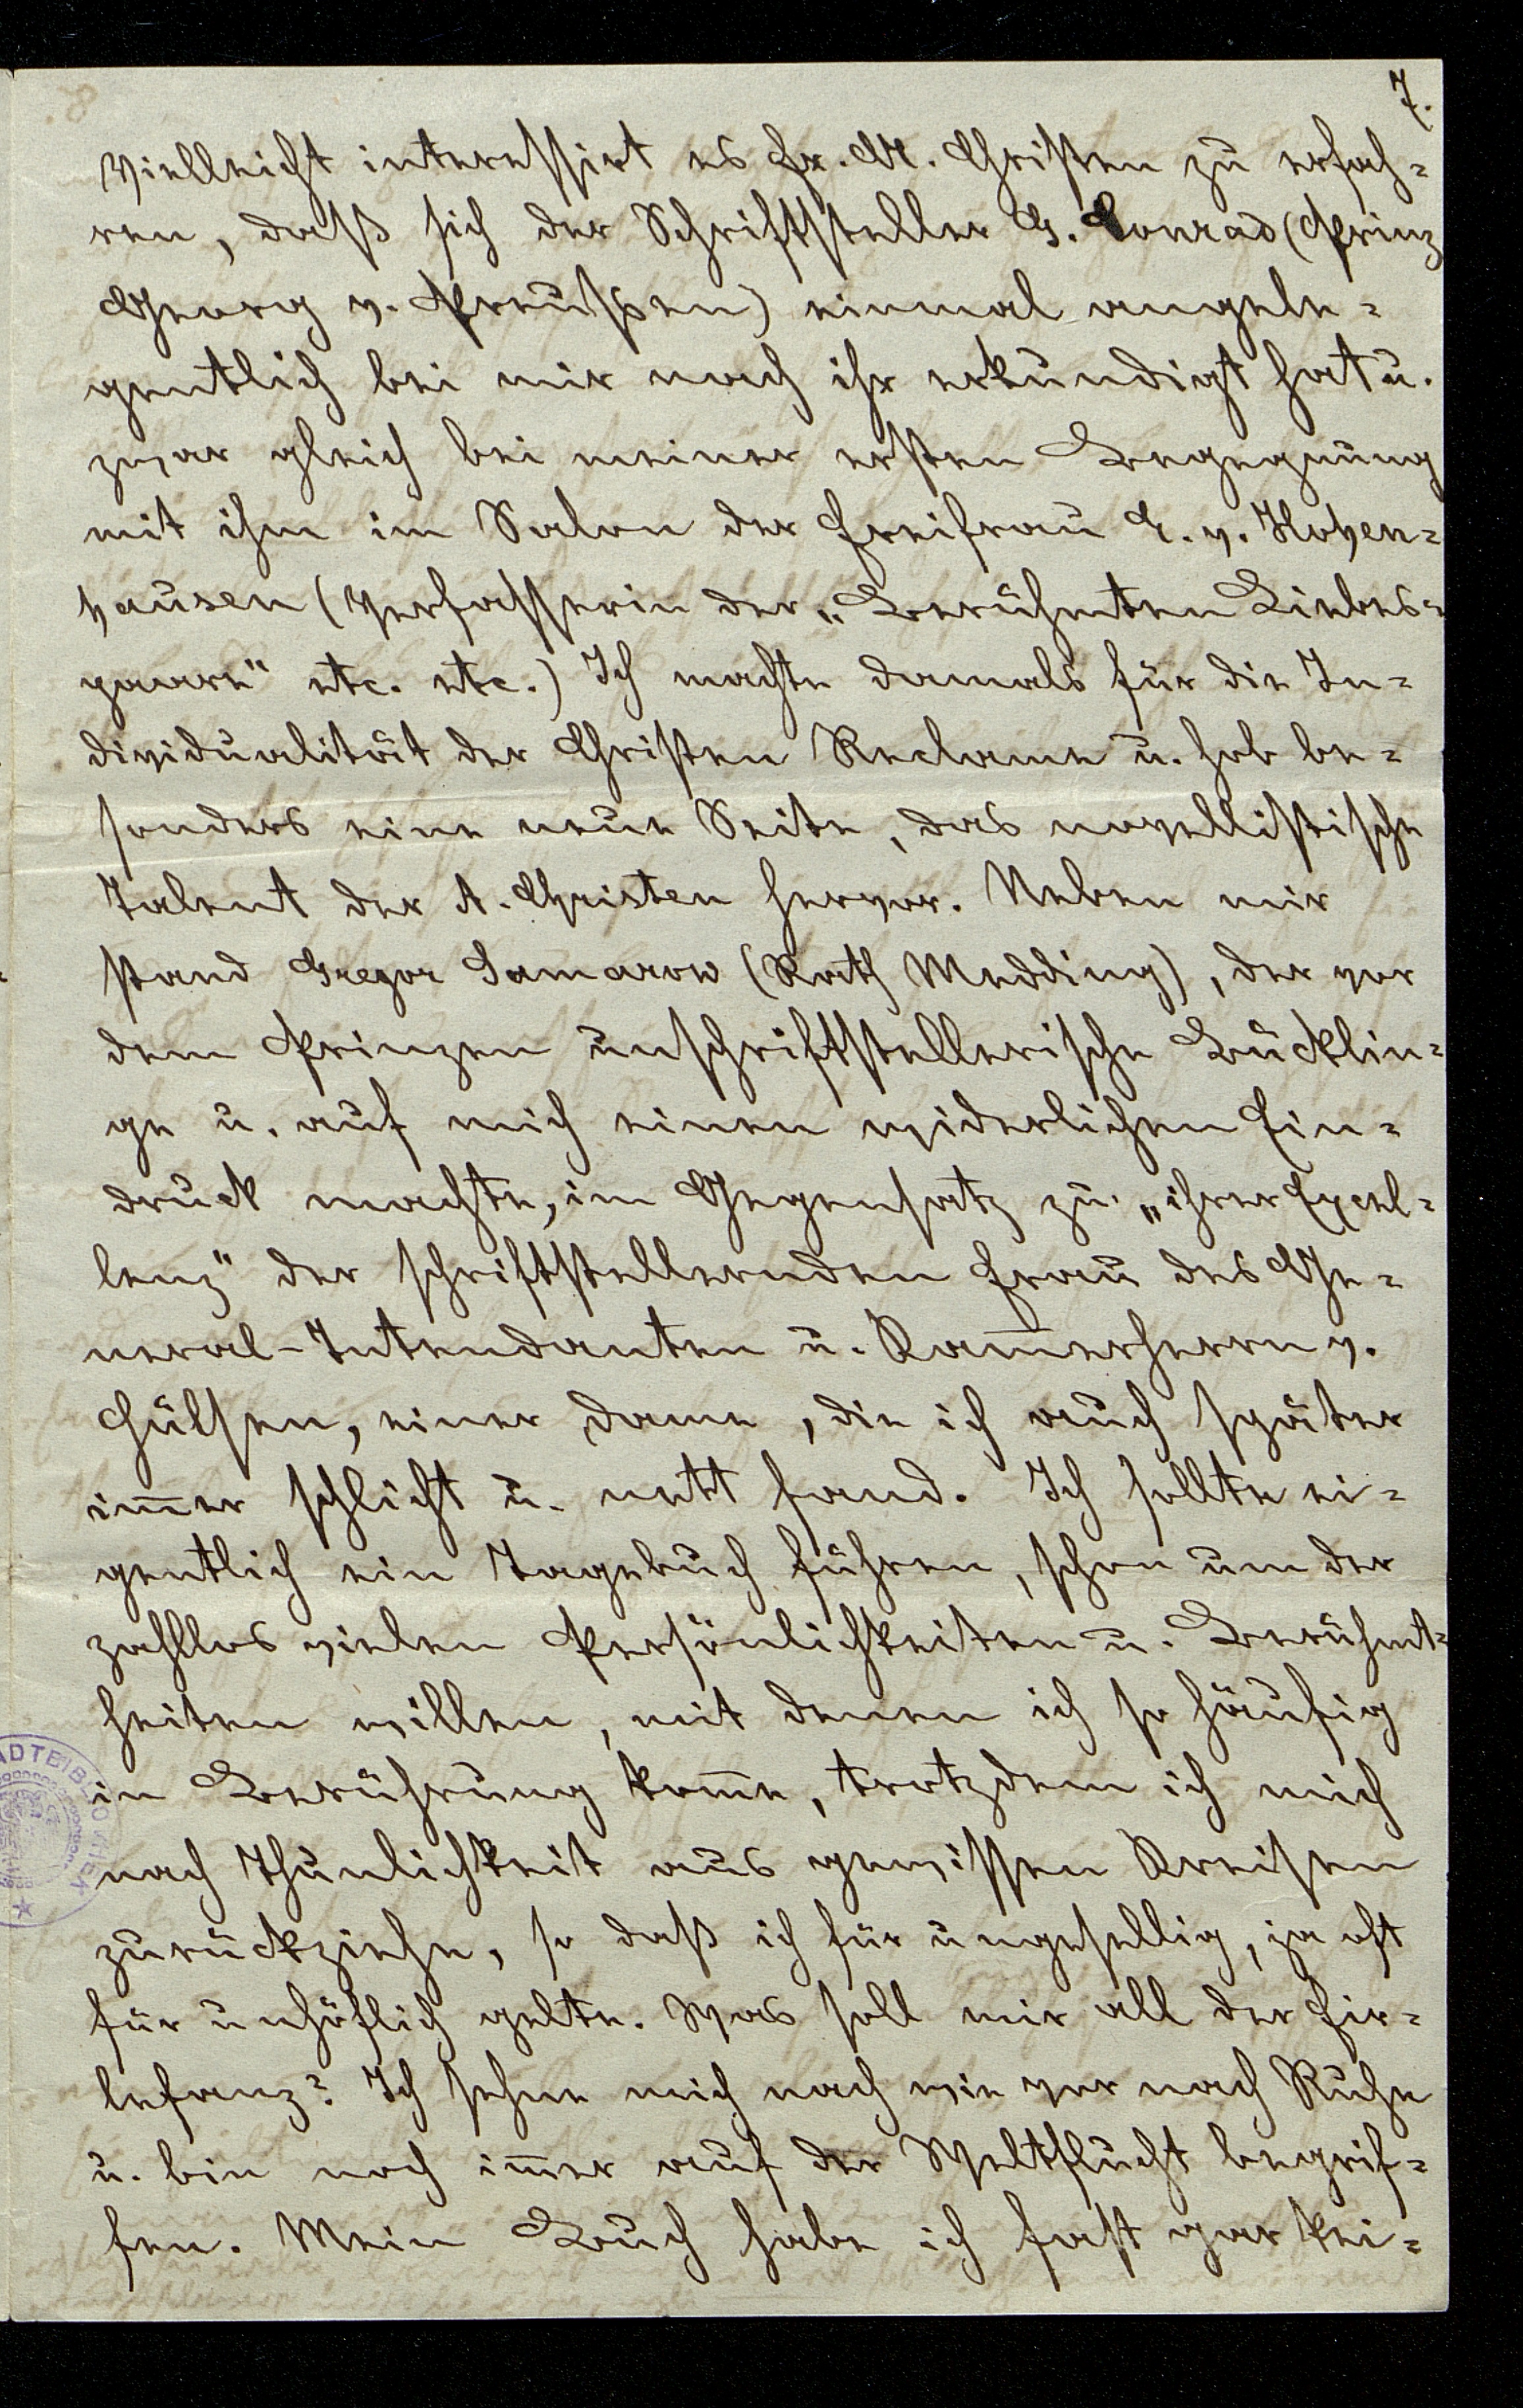 7.
Vielleicht interessirt es Fr. A. Christen zu erfah-
ren, daß sich der Schriftsteller G. Conrad (Prinz
Georg v. Preußen) einmal angele-
gentlich bei mir nach ihr erkundigt hat u.
zwar gleich bei meiner ersten Begegnung
mit ihm im Salon der Freifrau E. v. Hohen-
hausen (Verfasserin der „Berühmten Liebes-
paare" etc. etc.) Ich machte damals für die In-
dividualität der Christen Reclame u. hob be-
sonders eine neue Seite, das novellistische
Talent der A. Christen hervor. Neben mir
stand Gregor Samarow (Rath Medding), der vor
dem Prinzen unschriftstellerische Bücklin-
ge u. auf mich einen widerlichen Ein-
druck machte, im Gegensatz zu „ihrer Excel-
lenz" der schriftstellernden Frau des Ge-
neral-Intendanten u. Kam̅erherrn v.
Hülsen, einer Dame, die ich auch später
im̅er schlicht u. nett fand. Ich sollte ei-
gentlich ein Tagebuch führen, schon um der
zahllos vielen Persönlichkeiten u. Berühmt-
heiten willen, mit denen ich so häufig
in Berührung kom̅e, trotzdem ich mich
nach Thunlichkeit aus gewissen Kreisen
zurückziehe, so daß ich für ungesellig, ja oft
für unhöflich gelte. Was soll mir all der Fir-
lefanz? Ich sehne mich nach wie vor nach Ruhe
u. bin noch im̅er auf der Weltflucht begrif-
fen. Mein Buch habe ich fast gar kei-